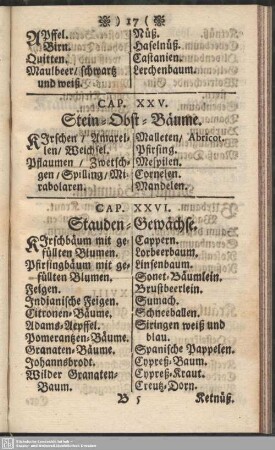 ) 17 (
APffel.
Birn.
Quitten.
Maulbeer/ schwartz
und weiß.
Nüß.
Haselnüß.
Castanien.
Lerchenbaum.
CAP. XXV.
Stein-Obst-Bäume.
KIrschen / Amarel-
len/ Weichsel.
Pflaumen / Zwetsch-
gen / Spilling/ Mi-
rabolaren.
Malleten/ Abricot.
Pfirsing.
Mespilen.
Cornelen.
Mandelen.
CAP. XXVI.
Stauden-Gewächse.
KIrschbäum mit ge-
fülten Blumen.
Pfirsingbäum mit ge-
fülten Blumen.
Feigen.
Indianische Feigen.
Citronen-Bäume.
Adams-Aepffel.
Pomerantzen-Bäume.
Granaten-Bäume.
Johannsbrodt.
Wilder Granaten-
Baum.
Cappern.
Lorbeerbaum.
Linsenbaum.
Sonet-Bäumlein.
Brustbeerlein.
Sumach.
Schneeballen.
Siringen weiß und
blau.
Spanische Pappelen.
Cypreß-Baum.
Cypreß-Kraut.
Creutz-Dorn.
B 5
Ketnüß.